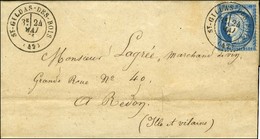 ST-GILDAS-DES-BOIS
24
MAI
(42)
Monsieur Lagrée, Marchand
Grande Rue No 40,
A Redon,
(Ille et vilaine)